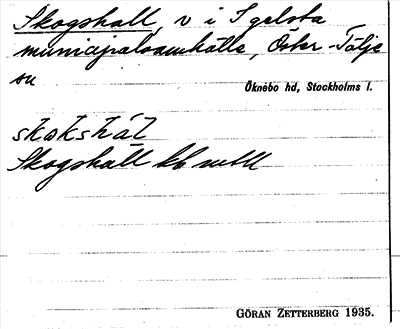 Skogshall, v i Igelsta
municipalsamhälle, Öster-Tälje
sn
Öknebo hd, Stockholms l.
skokshál
Skogshall kb
GÖRAN ZETTERBERG 1935.